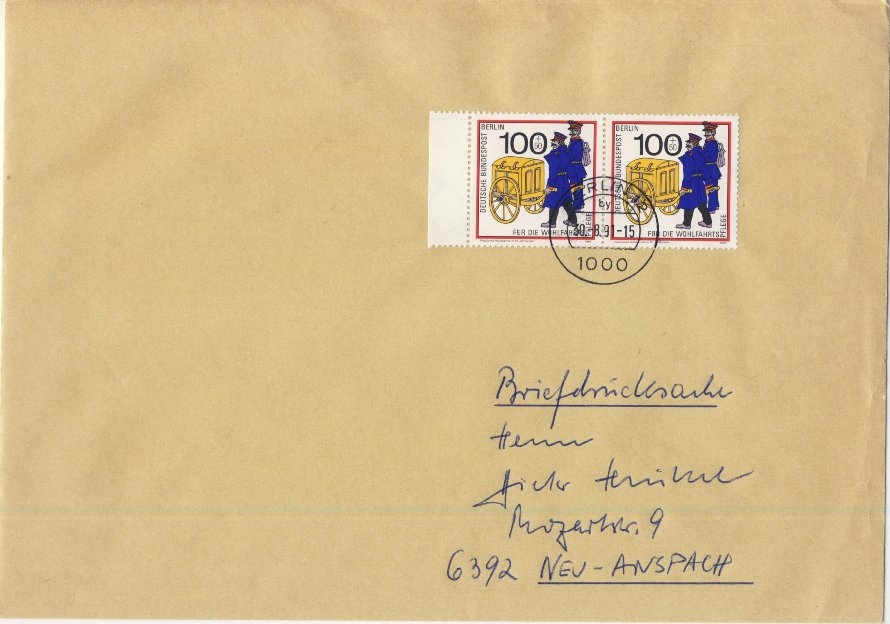 DEUTSCHE BUNDESPOST BERLIN
100
+50
FÜR DIE WOHLFAHRTSPFLEGE
DEUTSCHE BUNDESPOST BERLIN
100
+50
FÜR DIE WOHLFAHRTSPFLEGE
BERLIN
by
30.-8.91-15
1000
Briefdrucksache
Herrn
Mozartstr. 9
6392 NEU-ANSPACH